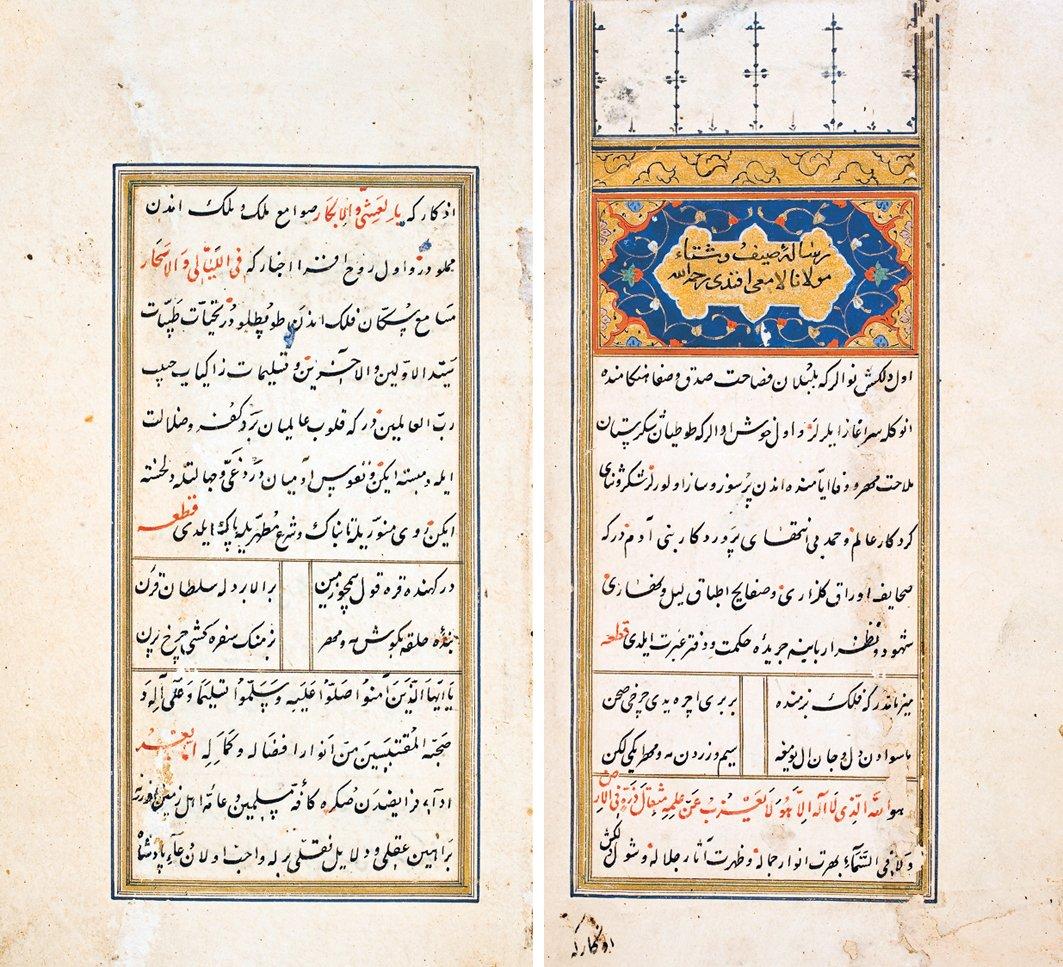 رسالۀ صیف و شتاء
مولانا لامعی افندی رحمه الله
اول دلکش نوالر که بلبلان فصاحت صدق و صفا هنکامنده
انوکله سرآغاز ایلرلر و اول خوش ادالر که طوطیان شکرستان
ملاحت مهر و وفا ایامنده اندن پرسوز و ساز اولورلر شکر و ثنای
کردکار عالم و حمد بی انتهای پروردکار بنی آدم در که
صحایف اوراق کلزاری و صفایح اطباق لیل و نهاری
شهود و نظر اربابنه جریدۀ حکمت و دفتر عبرت ایلدی قطعه
فلک بزمنده
بربری اچره یدی چرخی صحن
دل و جان
سیم و زردن مه و مهر
هو الله الذی لا اله الا هو لا یعزب عن علمه مثقال ذرة فی الارض
ولا فی السماء بهرت انوار جماله و ظهرت آثار جلاله و شول دلکش
اذکار که
اذکار که بالعشی والابکار صوامع ملک و ملک اندن
مملودر و اول روح افزا اخبار که فی اللیالی والاسحار
مسامع سکان فلک اندن طوپطولودر تحیات طیبات
سید الاولین والآخرین و تسلیمات زاکیات حبیب
رب العالمین در که قلوب عالمیان برد کفر و ضلالت
ایله بسته ایکن و نفوس آدمیان درد غی و جهالتله خسته
ایکن روی منوریله تابناک و شرع مطهریله پاک ایلدی قطعه
در کهنده قره قول
سلطان قرن
بندۀ حلقه بکوش مه و مهر
سفره کشی چرخ برن
یا ایها الذین آمنوا صلوا علیه وسلموا تسلیما وعلی آله و
صحبه المقتبسین من انوار افضاله و کماله اما بعد
ادای فرایضدن صکره کافۀ مسلمین و عامۀ اهل زمین اوزرنه
براهین عقلی و دلایل نقلی برله واجب اولان دعاء پادشاه